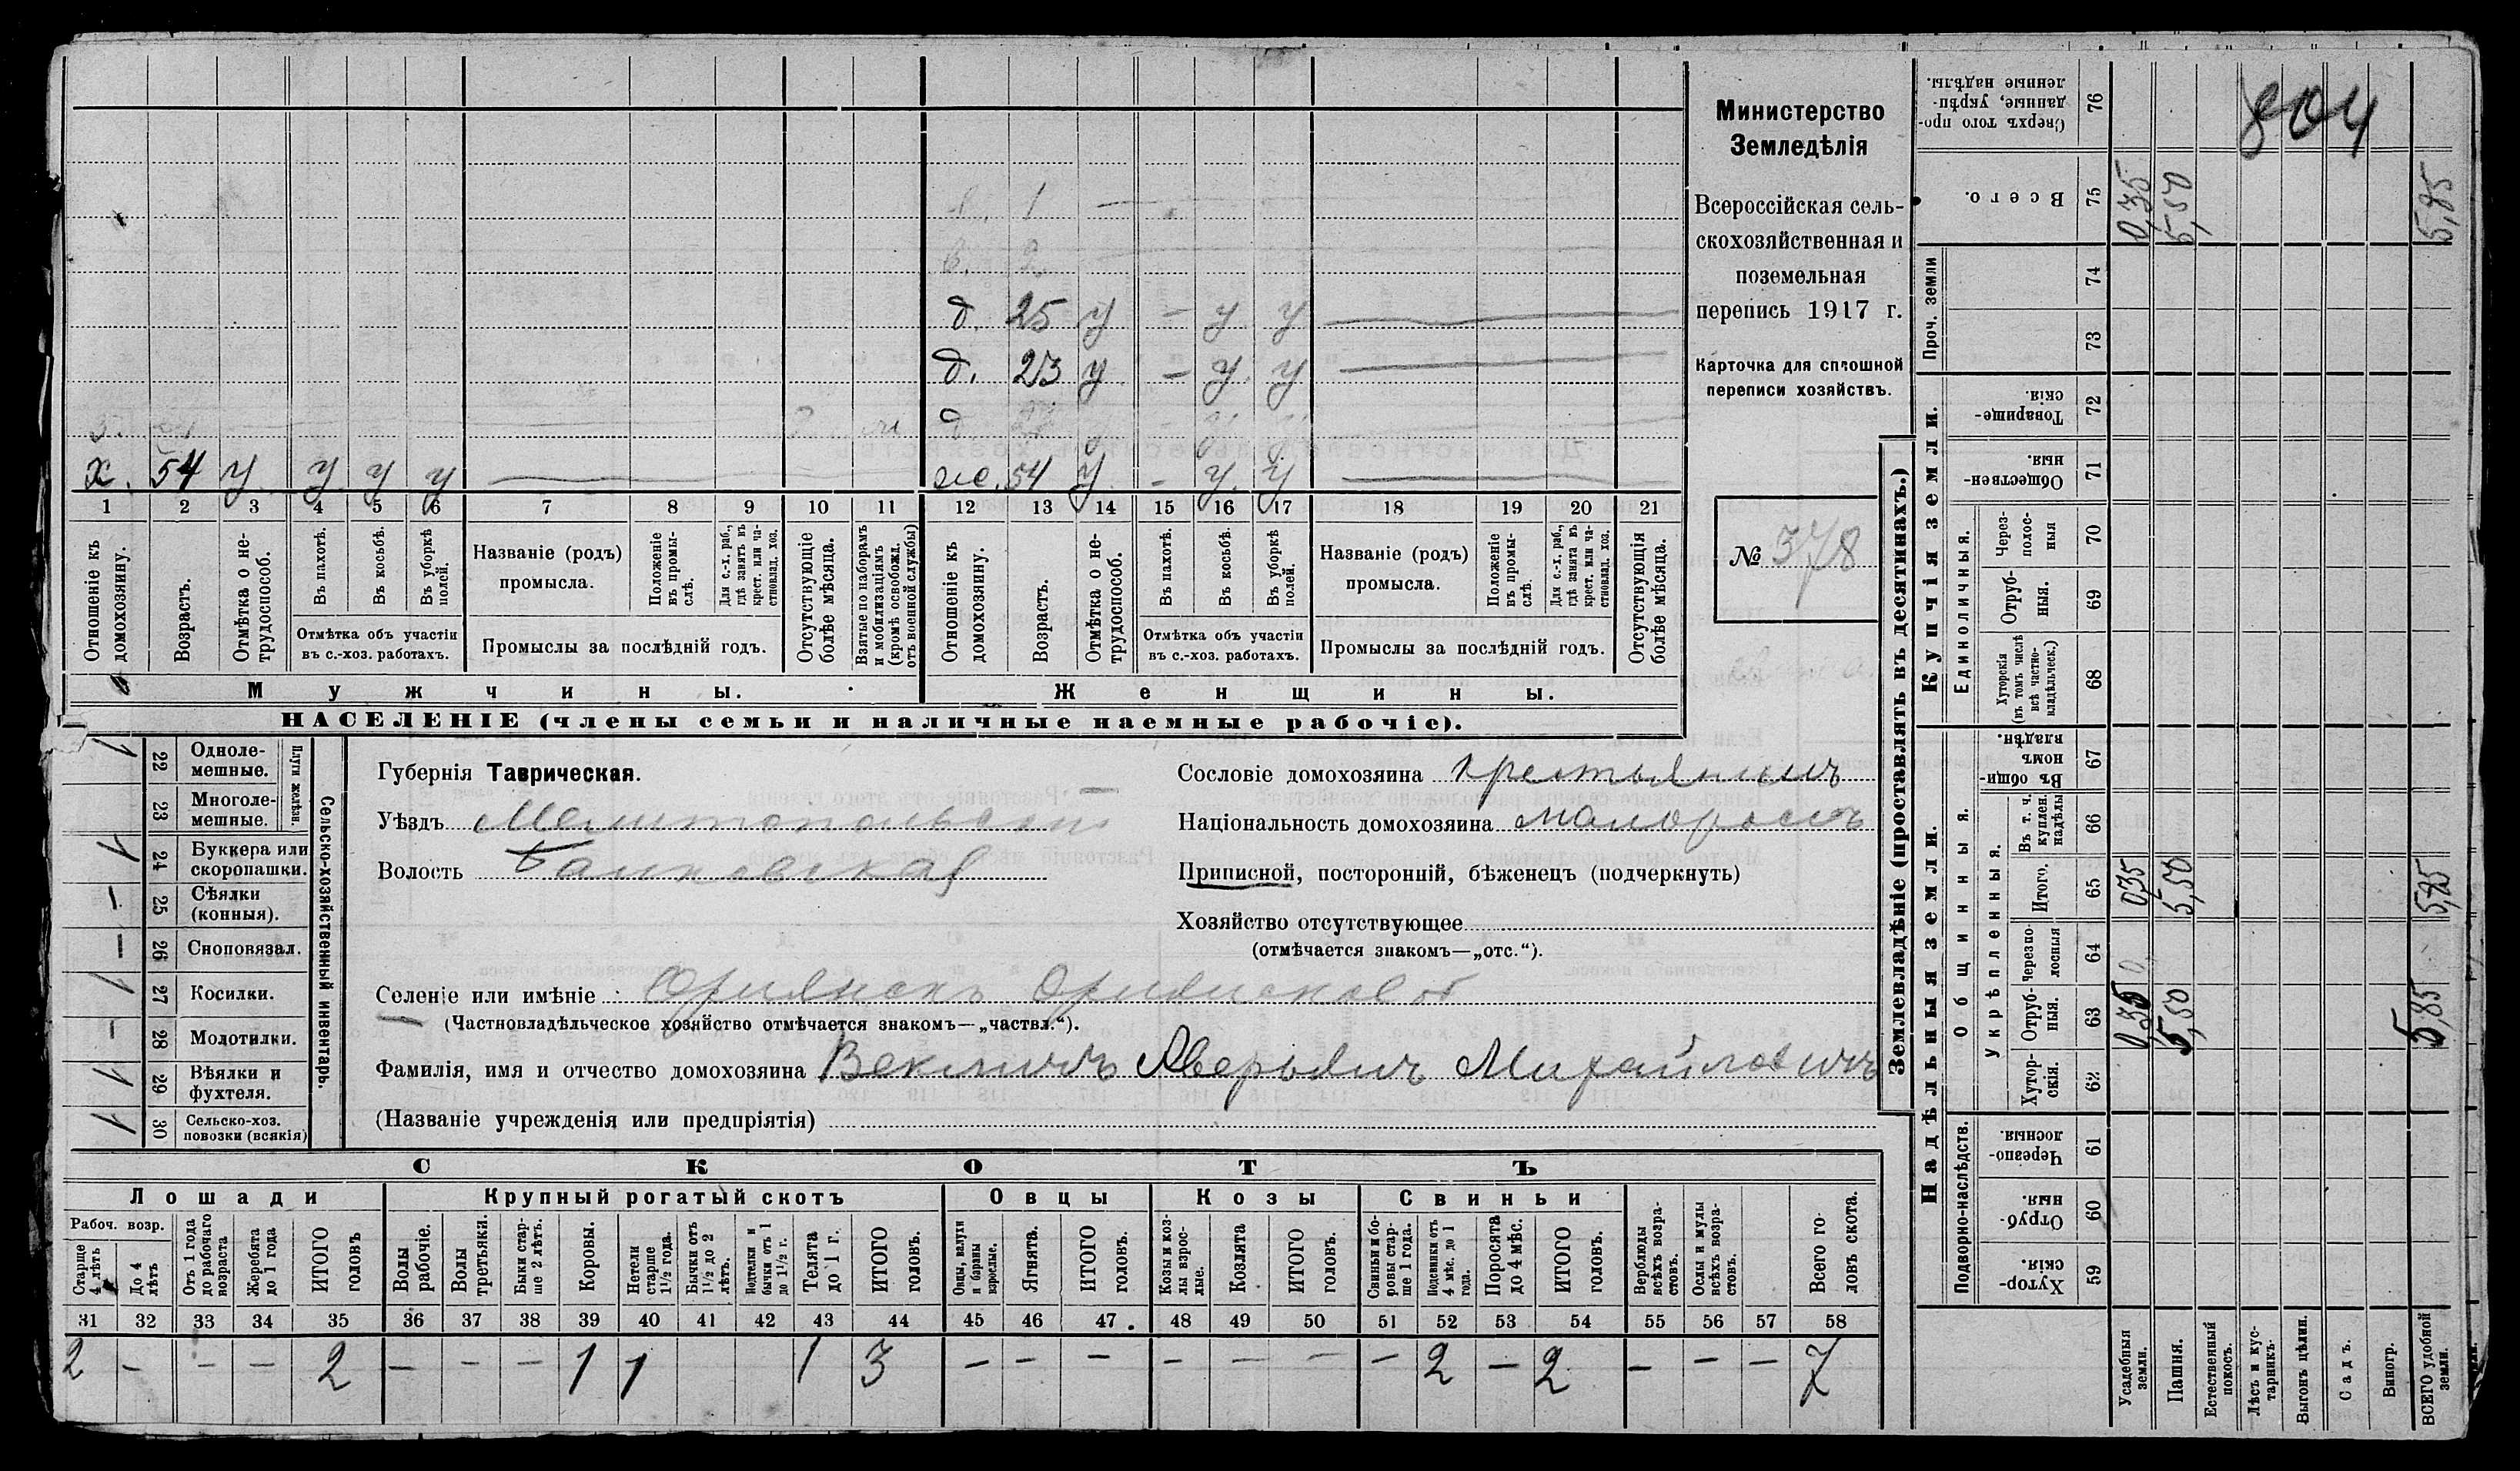 804
Министерство
Земледѣлія
Всероссійская сель-
скохозяйственная и
поземельная
перепись 1917 г.
Карточка для сплошной
переписи хозяйствъ.
№ 378
в. 1 —
в. 2
д. 25 у — у у —
д. 23 у — у у —
д
х. 54 у у у у — ж. 54 у — у у —
1 2 3 4 5 6 7 8 9 10 11 12 13 14 15 16 17 18 19 20 21
Отношеніе къ домохозяину.
Возрастъ.
Отмѣтка о не-трудоспособ.
Въ пахотѣ.
Въ косьбѣ.
Въ уборкѣ полей.
Отмѣтка объ участіи
въ с.-хоз. работахъ.
Названіе (родъ)
промысла.
Положеніе въ промы-слѣ.
Для с.-х. раб., гдѣ занятъ въ крест. или ча-стновлад. хоз.
Промыслы за послѣдній годъ.
Отсутствующіе болѣе мѣсяца.
Взятые по наборамъ и мобилизаціямъ (кромѣ освобожд. отъ военной службы)
Отношеніе къ домохозяину.
Возрастъ.
Отмѣтка о не-трудоспособ.
Въ пахотѣ.
Въ косьбѣ.
Въ уборкѣ полей.
Отмѣтка объ участіи
въ с.-хоз. работахъ.
Названіе (родъ)
промысла.
Положеніе въ промы-слѣ.
Для с.-х. раб., гдѣ занята въ крест. или ча-стновлад. хоз.
Промыслы за послѣдній годъ.
Отсутствующія болѣе мѣсяца.
Мужчины. Женщины.
НАСЕЛЕНІЕ (члены семьи и наличные наемные рабочіе).
Сельско-хозяйственный инвентарь.
Плуги желѣзн.
1 22 Одноле-мешные.
23 Многоле-мешные.
1 24 Буккера или скоропашки.
— 25 Сѣялки (конныя).
— 26 Сноповязал.
1 27 Косилки.
— 28 Молотилки.
1 29 Вѣялки и фухтеля.
1 30 Сельско-хоз. повозки (всякія)
Губернія Таврическая.
Уѣздъ Мелитопольскій
Волость
Сословіе домохозяина крестьянинъ
Національность домохозяина малороссъ
Приписной, посторонній, бѣженецъ (подчеркнуть)
Хозяйство отсутствующее
(отмѣчается знакомъ—„отс.“).
Селеніе или имѣніе
(Частновладѣльческое хозяйство отмѣчается знакомъ—„частвл.“).
Фамилія, имя и отчество домохозяина Векличъ Аверьянъ Михайловичъ
(Названіе учрежденія или предпріятія)
СКОТЪ
Лошади Крупный рогатый скотъ Овцы Козы Свиньи
Рабоч. возр.
Старше 4 лѣтъ
До 4 лѣтъ
Отъ 1 года до рабочаго возраста
Жеребята до 1 года
ИТОГО головъ
Волы рабочіе.
Волы третьяки.
Быки стар-ше 2 лѣтъ.
Коровы.
Нетели старше 1½ года.
Бычки отъ 1½ до 2 лѣтъ.
Подтелки и бычки отъ 1 до 1½ г.
Телята до 1 г.
ИТОГО головъ.
Овцы, валухи и бараны взрослые.
Ягнята.
ИТОГО головъ.
Козы и коз-лы взрос-лые.
Козлята
ИТОГО головъ.
Свиньи и бо-ровы стар-ше 1 года.
Подсвинки отъ 4 мѣс. до 1 года.
Поросята до 4 мѣс.
ИТОГО головъ.
Верблюды всѣхъ возра-стовъ.
Ослы и мулы всѣхъ возра-стовъ.
Всего го-ловъ скота.
31 32 33 34 35 36 37 38 39 40 41 42 43 44 45 46 47 48 49 50 51 52 53 54 55 56 57 58
2 — — — 2 — — — 1 1 1 3 — — — — — — — 2 — 2 — — — 7
Землевладѣніе (проставлять въ десятинахъ.)
Надѣльныя земли. Купчія земли.
Подворно-наслѣдств.
Общинныя.
Укрѣпленныя.
Единоличныя.
Проч. земли
59 Хутор-скія.
60 Отруб-ныя.
61 Черезпо-лосныя.
62 Хутор-скія.
63 Отруб-ныя. 0,35 5,50 5,85
64 Черезпо-лосныя
65 Итого. 0,35 5,50 5,85
66 Въ т. ч. куплен. надѣлы
67 Въ общи-номъ владѣн.
68 Хуторскія (въ томъ числѣ всѣ частно-владѣльческ.)
69 Отруб-ныя.
70 Через-полос-ныя
71 Обществен-ныя.
72 Товарище-скія.
73
74
75 Всего. 0,35 5,50 5,85
76 Сверхъ того про-данные, укрѣп-ленные надѣлы.
Усадебныя земли.
Пашня.
Естественный покосъ.
Лѣсъ и кус-тарникъ.
Выгонъ цѣлин.
Садъ.
Виногр.
ВСЕГО удобной земли.